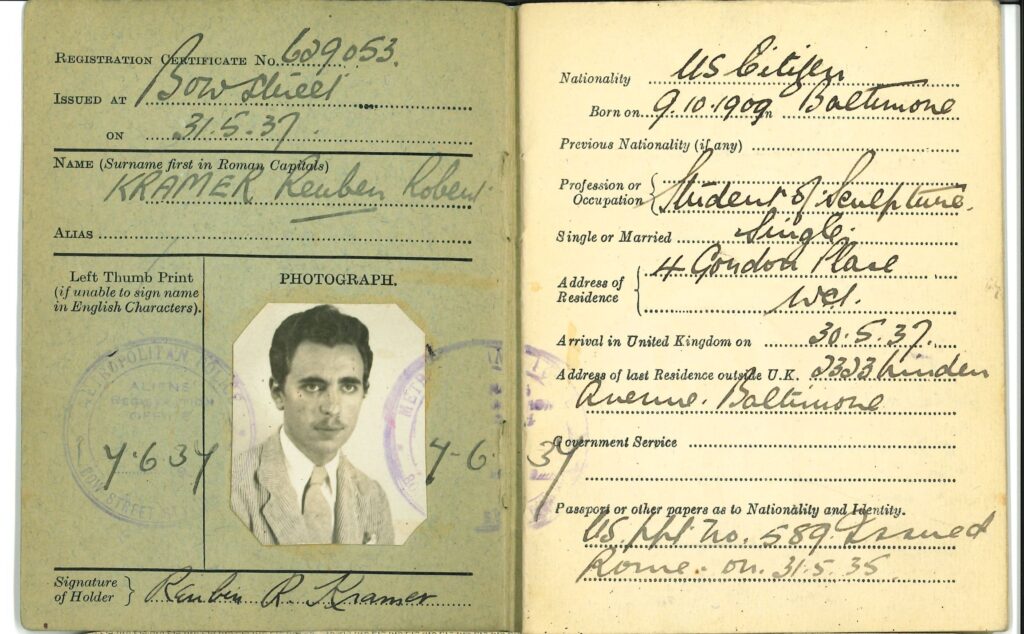 REGISTRATION CERTIFICATE No. 629053.
ISSUED AT Bow Street
ON 31.5.37.
NAME (Surname first in Roman Capitals)
KRAMER Reuben Robert
ALIAS
Left Thumb Print
(if unable to sign name
in English Characters).
PHOTOGRAPH.
METROPOLITAN POLICE
ALIENS
REGISTRATION
OFFICE
BOW STREET
7.6.37
7-6-37
Signature
of Holder } Reuben R. Kramer
Nationality US Citizen
Born on 9.10.1909 in Baltimore
Previous Nationality (if any)
Profession or
Occupation { Student of Sculpture.
Single or Married Single.
Address of
Residence { 4 Gordon Place
WC1.
Arrival in United Kingdom on 30.5.37.
Address of last Residence outside U.K. 2323 Linden
Avenue. Baltimore
Government Service
Passport or other papers as to Nationality and Identity.
US ppt No. 589 Issued
Rome. on. 31.5.35